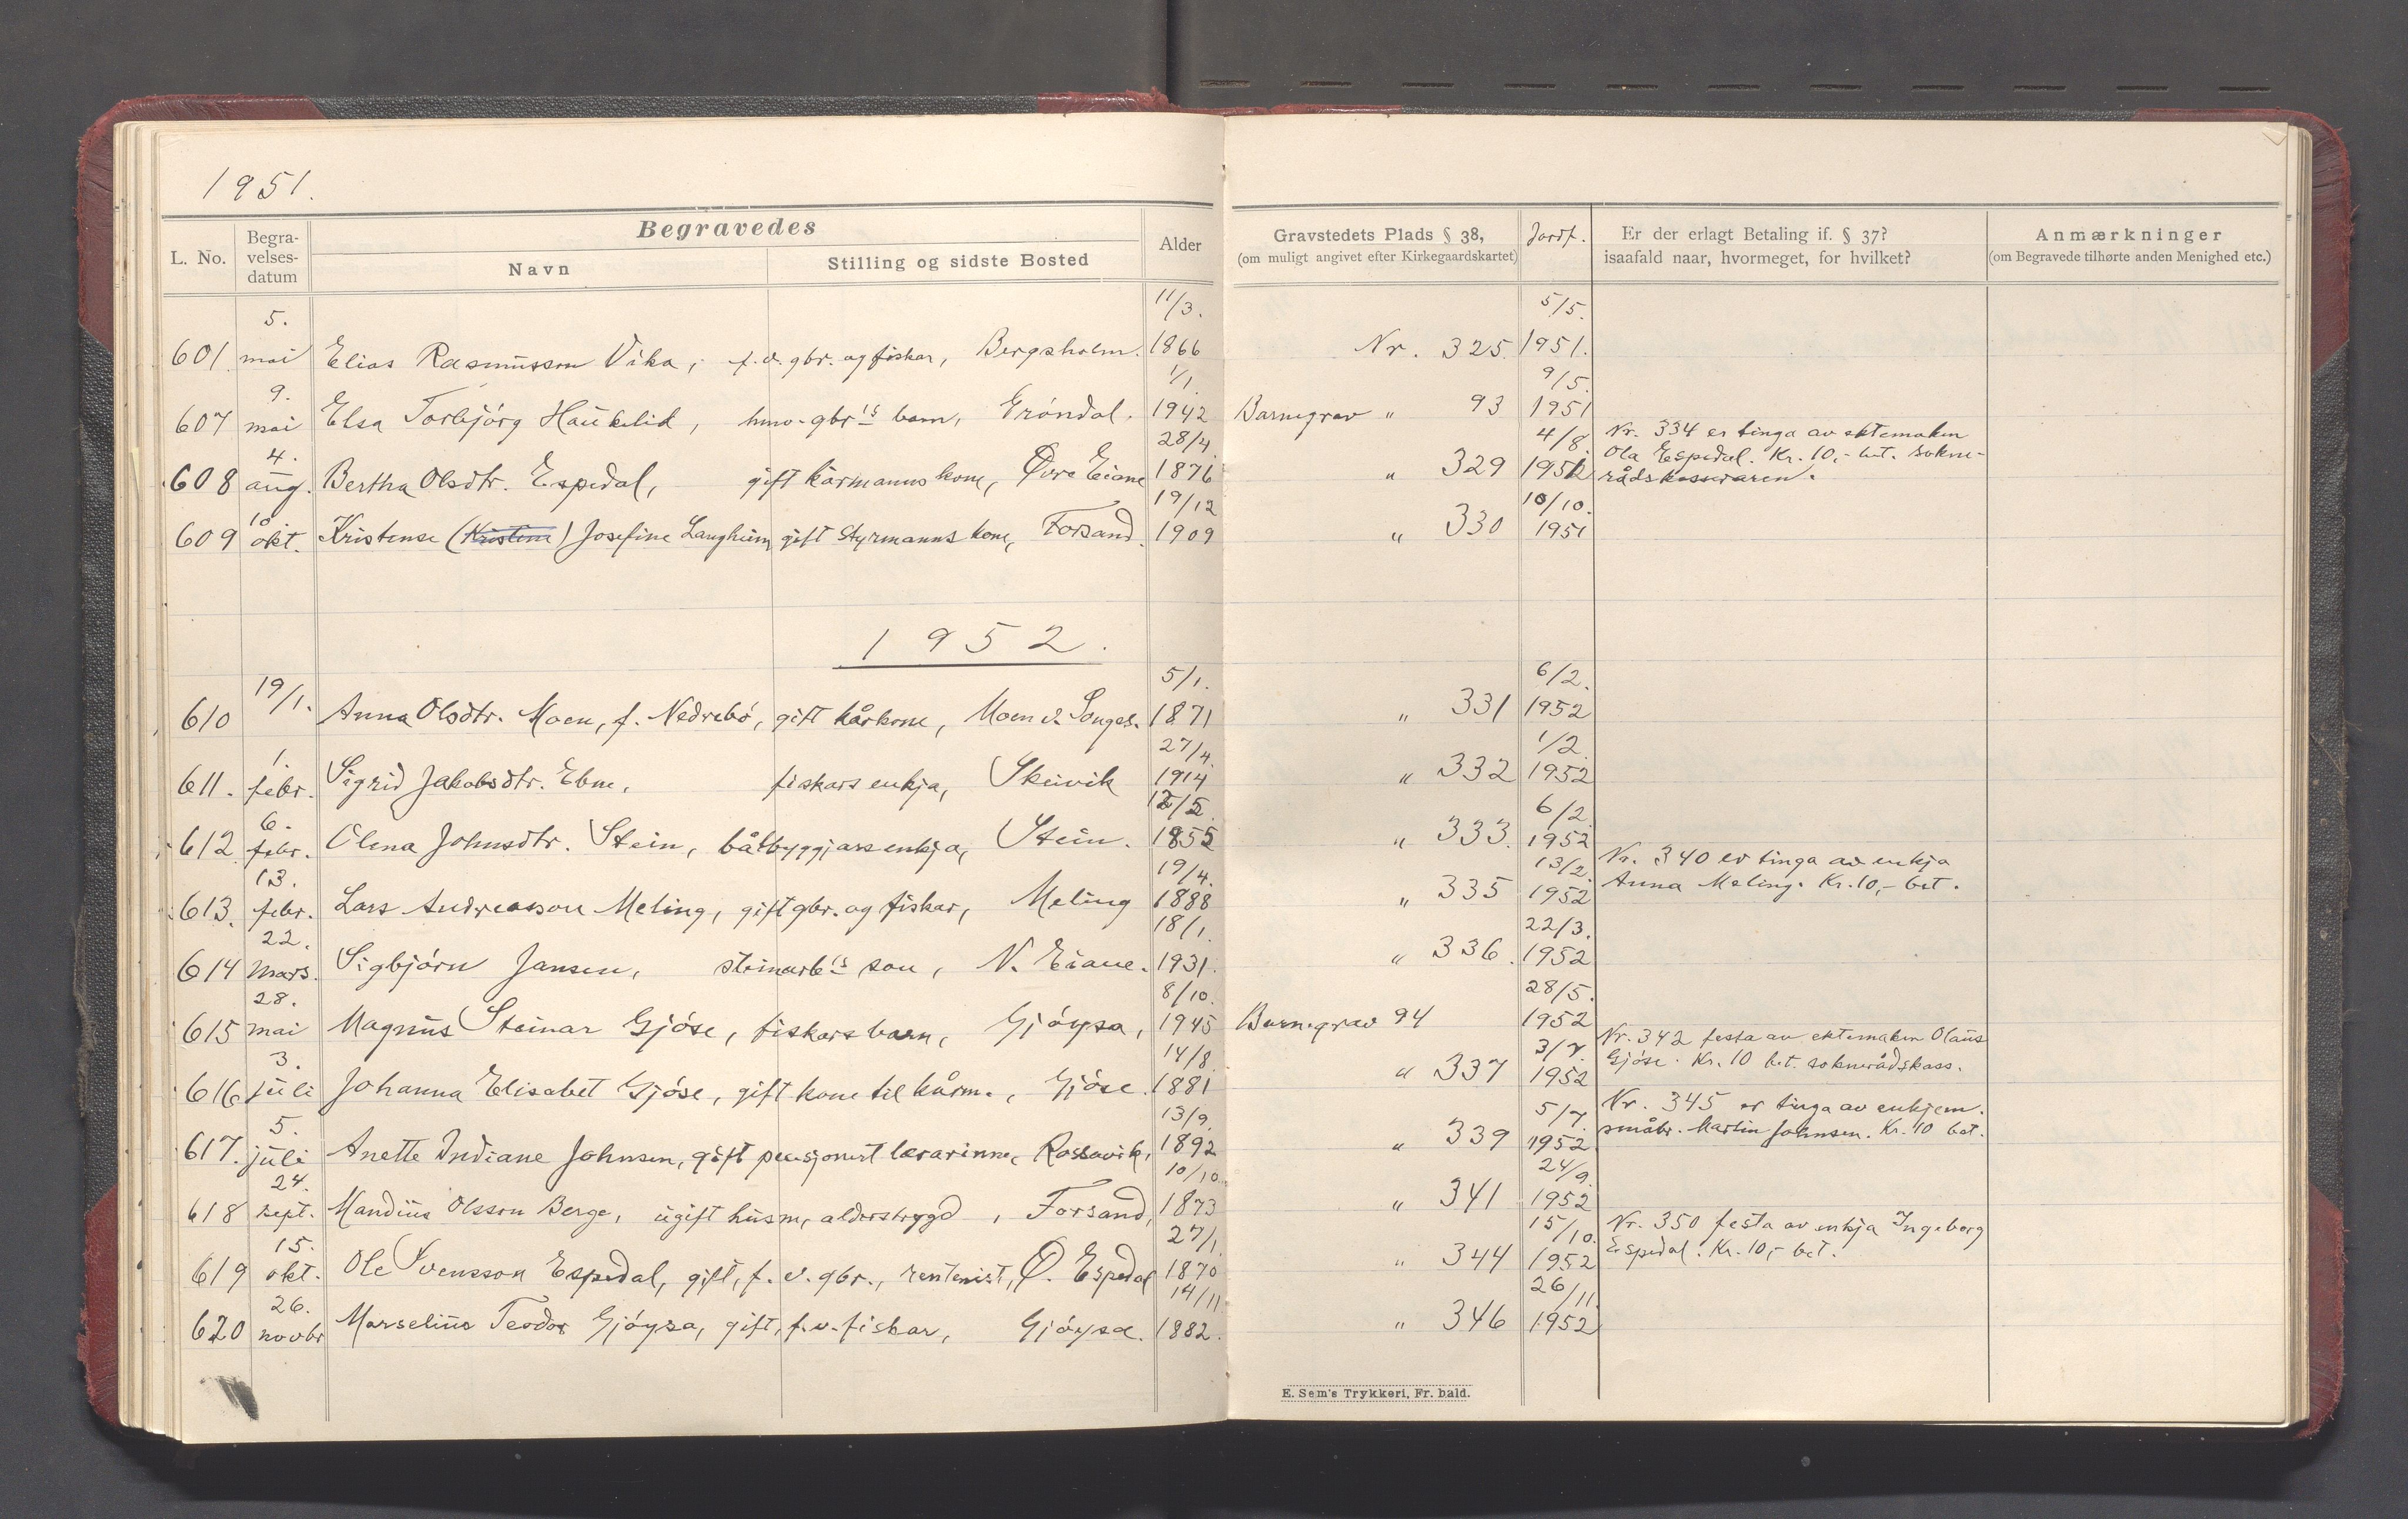 1951.
Begravedes
L. No. Begravelses-datum Navn Stilling og sidste Bosted Alder Gravstedets Plads § 38, (om muligt angivet efter Kirkegaardskartet) Jordf. Er der erlagt Betaling if. § 37? isaafald naar, hvormeget, for hvilket? Anmærkninger (om Begravede tilhørte anden Menighed etc.)
601. 5. mai Elias Rasmusson Vika, f.v. gbr. og fiskar, Bergsholm. 11/3. 1866 Nr. 325. 5/5. 1951.
607 9. mai Elsa Torbjørg Haukelid, hmv. gbr's barn, Grøndal. 1/1. 1942 Barnegrav " 93 9/5. 1951
608 4. aug. Bertha Olsdtr. Espedal, gift kårmanns kone, Øvre Eiane 28/4. 1876 " 329 4/8. 1951 Nr. 334 er tinga av ektemaken
Ola Espedal. Kr. 10,- bet. sokne-
rådskasseraren.
609 10 okt. Kristense (Kristine) Josefine Langheim gift Styrmanns kone, Forsand. 19/12 1909 " 330 10/10. 1951
1952.
610 19/1. Anna Olsdtr. Moen, f. Nedrebø, gift kårkone, Moen v. Songes. 5/1. 1871 " 331 6/2. 1952
611. 1. febr. Sigrid Jakobsdtr. Ebne, fiskars enkja, Skeivik 27/4. 1914 " 332 1/2. 1952
612 6. febr. Olena Johnsdtr. Stein, båtbyggjars enkja, Stein. 12/2. 1855 " 333. 6/2. 1952
613. 13. febr. Lars Andreasson Meling, gift gbr. og fiskar, Meling 19/4. 1888 " 335 13/2. 1952 Nr. 340 er tinga av enkja
Anna Meling. Kr. 10,- bet.
614 22. mars. Sigbjørn Jansen, steinarb's son, N. Eiane. 18/1. 1931. " 336. 22/3. 1952
615 28. mai Magnus Steinar Gjøse, fiskars barn, Gjøysa, 8/10. 1945 Barnegrav 94 28/5. 1952
616 3. juli Johanna Elisabet Gjøse, gift kone til kårm., Gjøse. 14/8. 1881 " 337 3/7. 1952 Nr. 342 festa av ektemaken Olaus
Gjøse. Kr. 10 bet. soknerådskass.
617. 5. juli Anette Indiane Johnsen, gift pensjonert lærarinne, Rossavik, 13/9. 1892 " 339 5/7. 1952 Nr. 345 er tinga av enkjem.
småbr. Martin Johnsen. Kr. 10 bet.
618 24. sept. Mandius Olsson Berge, ugift husm, alderstrygd, Forsand, 10/10. 1873 " 341 24/9. 1952
619 15. okt. Ole Svensson Espedal, gift, f.v. gbr., rentenist, Ø. Espedal 27/1. 1870 " 344 15/10. 1952 Nr. 350 festa av enkja Ingeborg
Espedal. Kr. 10,- bet.
620 26. novbr Marselius Teodor Gjøysa, gift, f.v. fiskar, Gjøysa. 14/11. 1882. " 346 26/11. 1952
E. Sem's Trykkeri, Fr. hald.